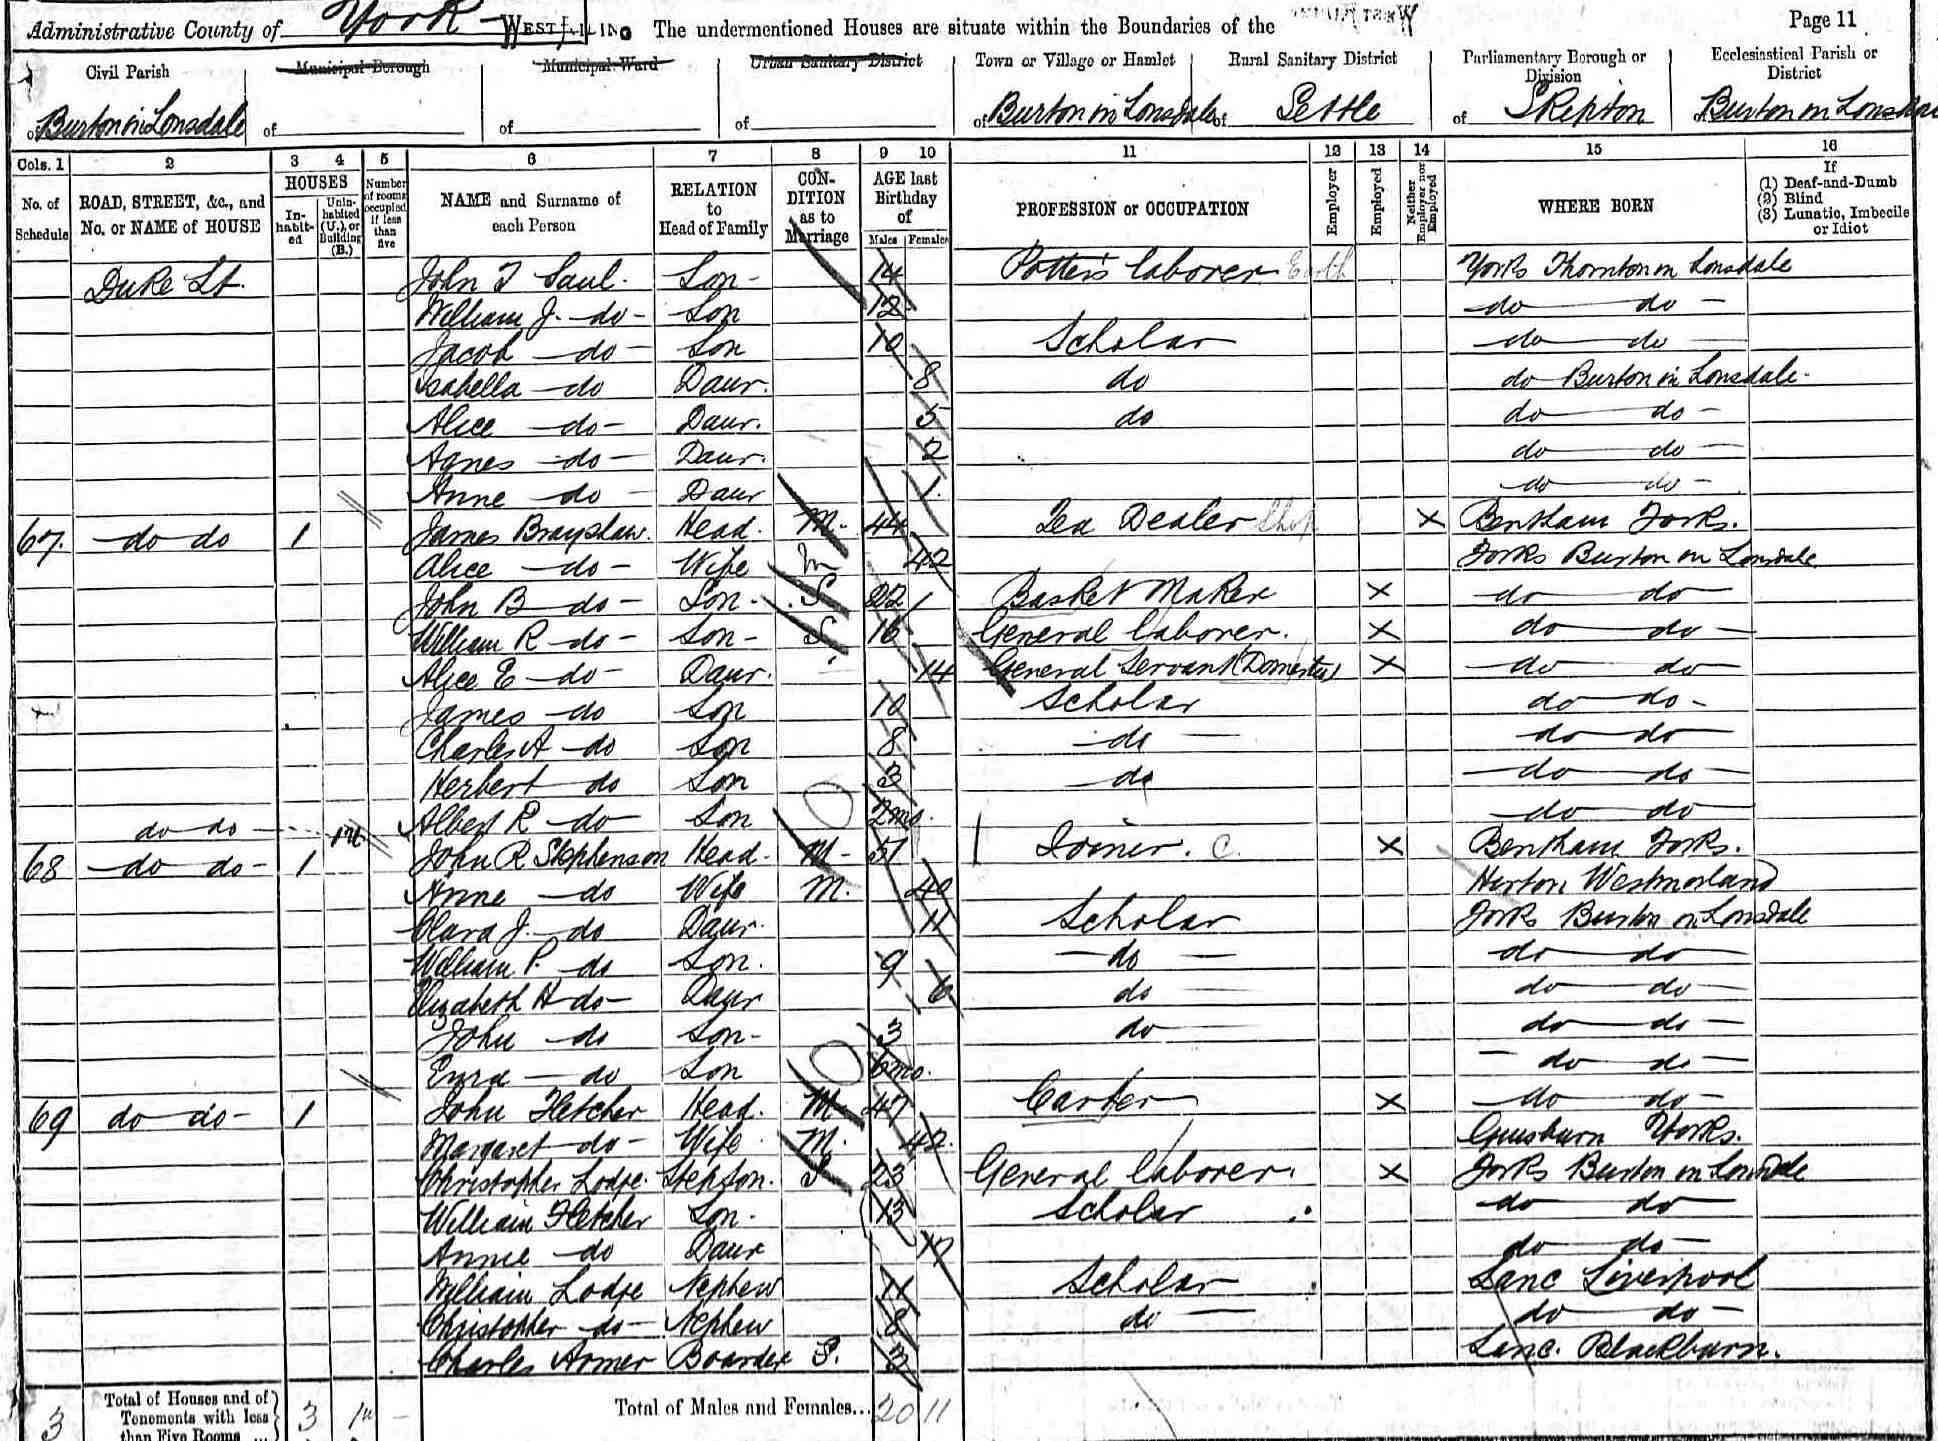 Administrative County of York WEST RIDING The undermentioned Houses are situate within the Boundaries of the Page 11
Civil Parish Municipal Borough Municipal Ward Urban Sanitary District Town or Village or Hamlet Rural Sanitary District Parliamentary Borough or Division Ecclesiastical Parish or District
of Burton in Lonsdale of of of of Burton in Lonsdale of Settle of Skipton of Burton in Lonsdale
Cols. 1 2 3 4 5 6 7 8 9 10 11 12 13 14 15 16
No. of Schedule ROAD, STREET, &c., and No. or NAME of HOUSE HOUSES In-habit-ed Unin-habited (U.), or Building (B.) Number of rooms occupied if less than five NAME and Surname of each Person RELATION to Head of Family CON-DITION as to Marriage AGE last Birthday of Males Females PROFESSION or OCCUPATION Employer Employed Neither Employer nor Employed WHERE BORN If (1) Deaf-and-Dumb (2) Blind (3) Lunatic, Imbecile or Idiot
Duke St. John T Saul. Son - 14 Potter's laborer Yorks Thornton in Lonsdale
William J. - do - Son 12 do do -
Jacob - do - Son 10 Scholar do do
Isabella - do Daur. 8 do do Burton in Lonsdale.
Alice - do - Daur. 5 do do do -
Agnes - do - Daur. 2 do do -
Anne - do - Daur 1. do do -
67. do do 1 James Brayshaw. Head. M. 44 Tea Dealer Shop X Bentham Yorks.
Alice - do - Wife M 42 Yorks Burton in Lonsdale
John B - do - Son - S 22 Basket Maker X do do
William R - do - Son - S 16 General laborer. X do do -
Alice E - do - Daur. 14 General Servant (Domestic) X do do
James - do Son 10 Scholar do do -
Charles A - do Son 8 - do - do do
Herbert - do Son 3 do - do do -
do do Albert R - do - Son 2mo. do do
68 - do do - 1 John R Stephenson Head - M - 51 Joiner. C. X Bentham Yorks.
Anne - do Wife M. 40 Westmorland
Clara J. - do Daur. 11 Scholar Yorks Burton in Lonsdale
William P. - do Son. 9 - do - do do
Elizabeth H - do - Daur 6 do do do -
John - do Son - 3 do do do -
do Son 6mo. - do do -
69 do do - 1 John Fletcher Head. M 47 Carter X do do -
Margaret - do - Wife M. 42. Yorks.
Christopher Lodge. Stepson. S 23 General laborer. X Yorks Burton in Lonsdale
William Fletcher Son - 13 Scholar do do
Annie - do Daur 12 do do -
William Lodge Nephew 11 Scholar Lanc Liverpool
Christopher - do - Nephew 8 do do do -
Charles Armer Boarder S. Lanc. Blackburn.
3 Total of Houses and of Tenements with less than Five Rooms 3 1u - Total of Males and Females... 20 11